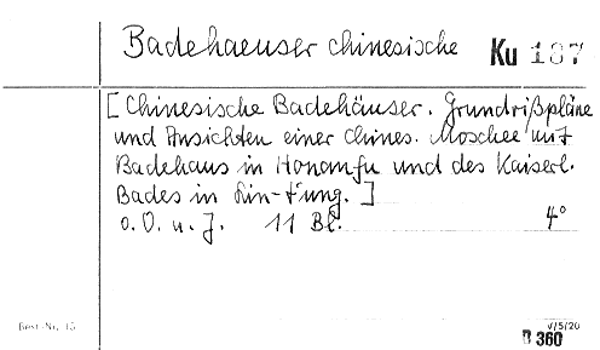 Badehaeuser chinesische Ku 187
[Chinesische Badehäuser. Grundrißpläne
und Ansichten einer Chines. Moschee mit
Badehaus in Honanfu und des Kaiserl.
Bades in Lin-t'ung.]
o. O. u. J. 11 Bl. 4°
Best.-Nr. 15 V/5/20
B 360